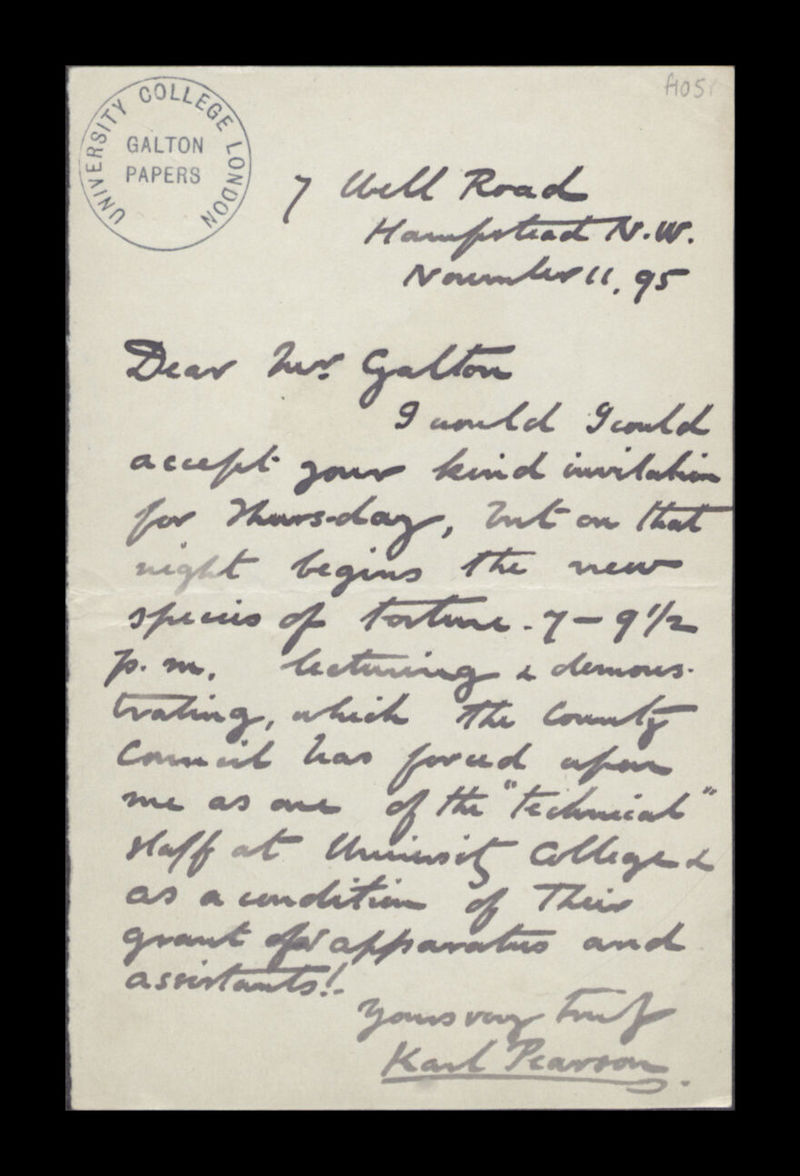 A105
UNIVERSITY COLLEGE LONDON
GALTON
PAPERS
7 Well Road
Hampstead N.W.
November 11, 95
Dear Mr. Galton
I would I could
accept your kind invitation
for Thursday, but on that
night begins the new
species of torture - 7 – 9 1/2
p.m. lecturing & demons-
trating, which the County
Council has forced upon
me as one of the "technical"
staff at University College &
as a condition of their
grant for apparatus and
assistants!
Yours very truly
Karl Pearson.